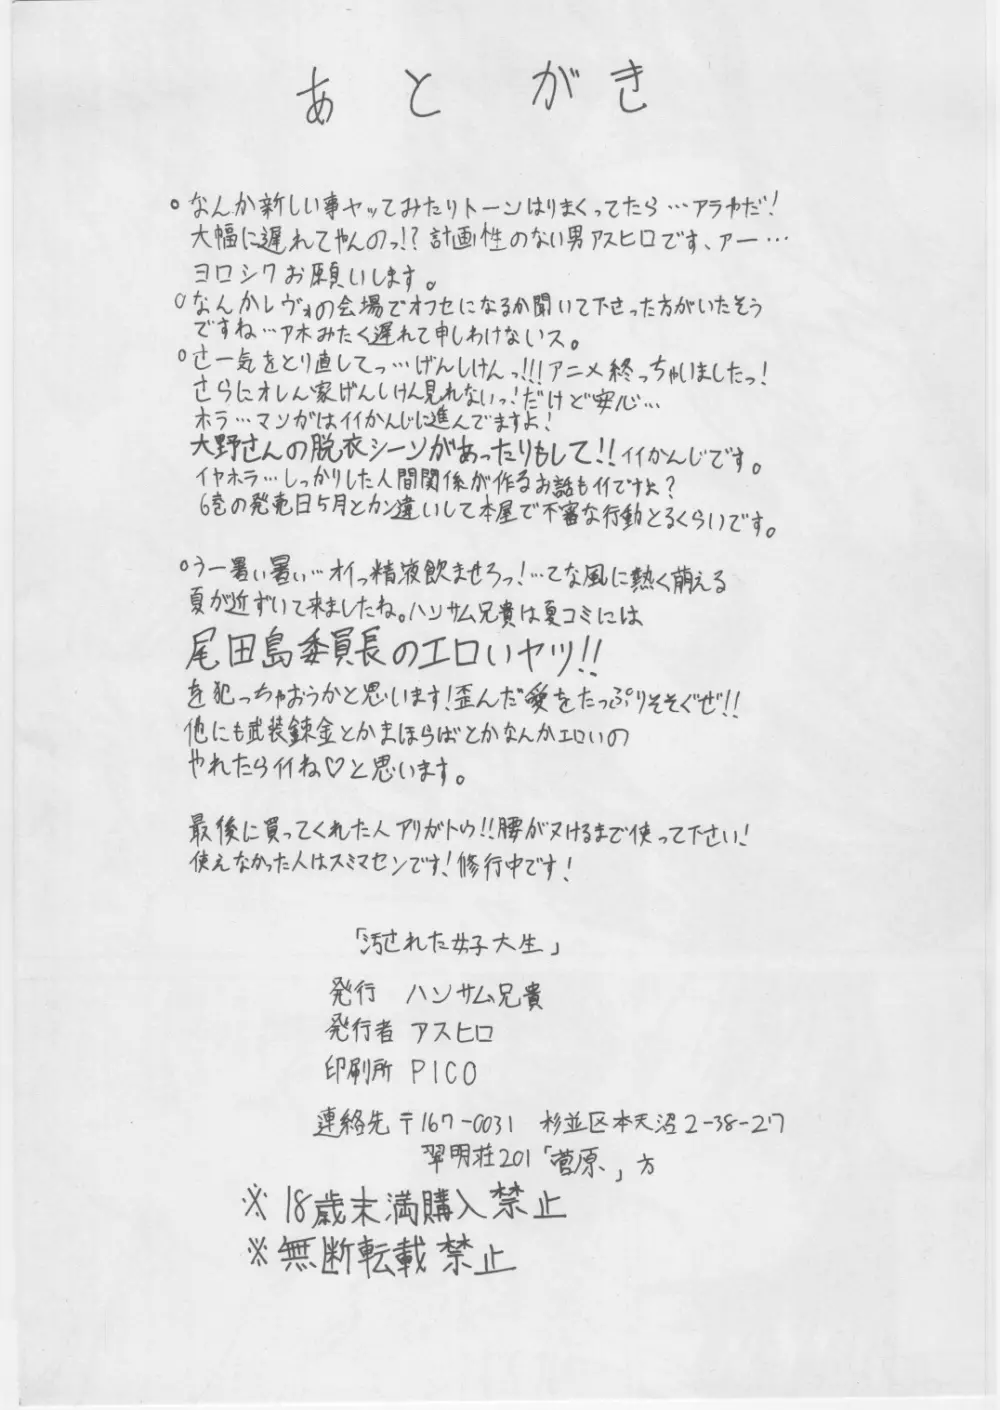 あとがき
○なんか新しい事ヤッてみたりトーンはりまくってたら…アラヤだ!
大幅に遅れてやんのっ!?計画性のない男アスヒロです、アー…
ヨロシクお願いします。
○なんかレヴォの会場でオフセになるか聞いて下さった方がいたそう
ですね…アホみたく遅れて申しわけないス。
○さー気をとり直してっ…げんしけんっ!!!アニメ終っちゃいましたっ!
さらにオレん家げんしけん見れないっ!だけど安心…
ホラ…マンガはイイかんじに進んでますよ!
大野さんの脱衣シーンがあったりもして!!イイかんじです。
イヤホラ…しっかりした人間関係が作るお話もイイですよ?
6巻の発売日5月とカン違いして本屋で不審な行動とるくらいです。
○うー暑い暑い…オイっ精液飲ませろっ!…てな風に熱く萌える
夏が近ずいて来ましたね。ハンサム兄貴は夏コミには
尾田島委員長のエロいヤツ!!
を犯っちゃおうかと思います!歪んだ愛をたっぷりそそぐぜ!!
他にも武装錬金とかまほらばとかなんかエロいの
やれたらイイね♡と思います。
最後に買ってくれた人アリガトウ!!腰がヌけるまで使って下さい!
使えなかった人はスミマセンです!修行中です!
「汚された女子大生」
発行 ハンサム兄貴
発行者 アスヒロ
印刷所 PICO
連絡先 〒167-0031 杉並区本天沼2-38-27
翠明荘201「菅原」方
※18歳未満購入禁止
※無断転載禁止